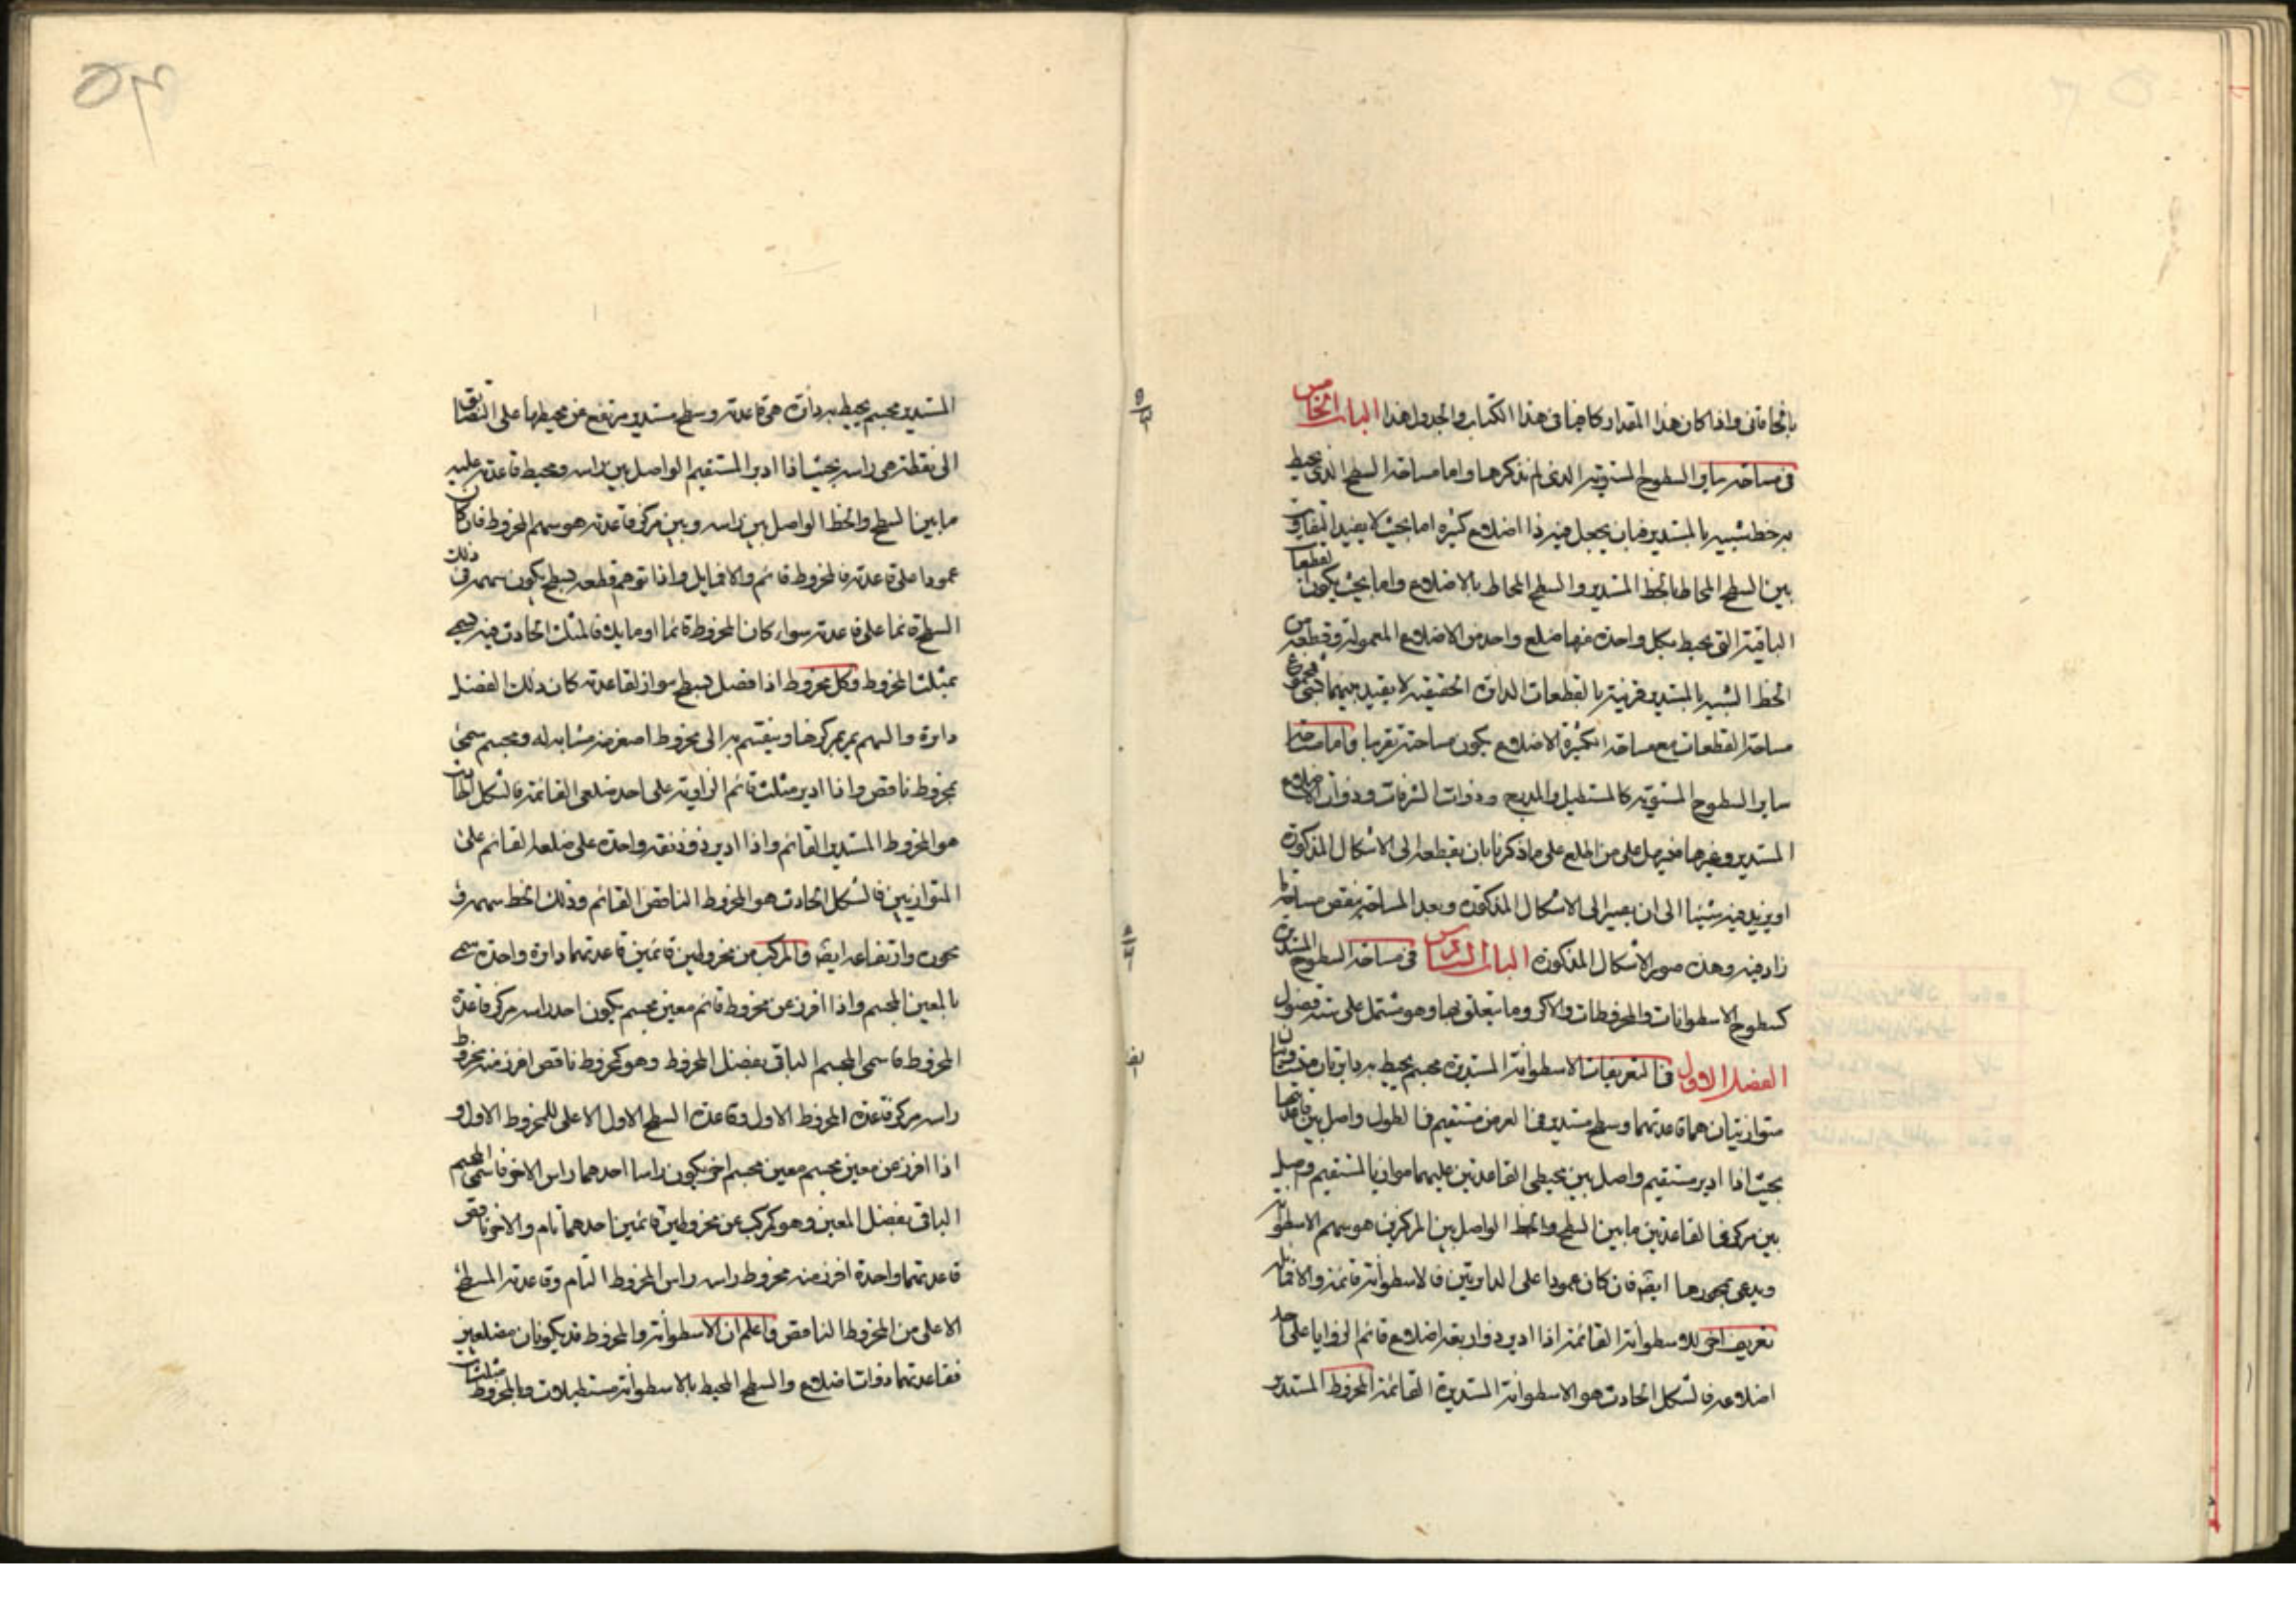 بالحاقاتی واذا كان هذا المقدار كافيا فی هذا الكتاب والجدول هذا الباب الخامس
فی مساحة سایر السطوح المستویة الذی لم نذكرها واما مساحة السطح الذی یحیط
به خط شبیه بالمستدیر فبان یجعل فیه ذا اضلاع كثیره اما بحیث لا یفید التفاوت
بین السطح المحاط بالخط المستدیر والسطح المحاط بالاضلاع واما بحیث یكون القطعات
الباقیة التی یحیط بكل واحدة منها ضلع واحد من الاضلاع المعمولة وقطعة من
الخط الشبیه بالمستدیر قریبة بالقطعات الدائرة الحقیقیه لا یفید بینهما شئ فمجموع
مساحة القطعات مع مساحة الكثیرة الاضلاع یكون مساحته تقریبا واما مساحة
سایر السطوح المستویه كالمستطیل والمدرج وذوات الشرفات وذوات الاضلاع
المستدیر وغیرها فیسهل علی من اطلع علی ما ذكرنا بان یقطعه الی الاشكال المذكورة
او یزید فیه شیئا الی ان یصیر الی الاشكال المذكورة وبعد المساحة ینقص مساحة ما
زاد فیه وهذه صور الاشكال المذكورة الباب السادس فی مساحة السطوح المستدیرة
كسطوح الاسطوانات والمخروطات والاكر وما یتعلق بها وهو مشتمل علی ستة فصول
الفصل الاول فی التعریفات الاسطوانة المستدیرة مجسم یحیط به دایرتان متساویتان
متوازیتان هما قاعدتهما وسطح مستدیر فی العرض مستقیم فی الطول واصل بین قاعدتها
بحیث اذا ادیر مستقیم واصل بین محیطی القاعدتین علیهما موازیا لمستقیم وصل
بین مركزی القاعدتین ما بین السطح والخط الواصل بین المركزین هو سهم الاسطوانة
ویدعی بمحورها ایضه فان كان عمودا علی الدایرتین فالاسطوانة قائمة والا فمایلة
تعریف اخر للاسطوانة القائمة اذا ادیر ذو اربعة اضلاع قائم الزوایا علی احد
اضلاعه فالشكل الحادث هو الاسطوانة المستدیرة القائمة المخروط المستدیر
المستدیر مجسم یحیط به دائرة هی قاعدته وسطح مستدیر مرتفع عن محیطها علی التضایق
الی نقطة هی راسه بحیث اذا ادیر المستقیم الواصل بین راسه ومحیط قاعدته علیه
ما بین السطح والخط الواصل بین راسه وبین مركز قاعدته هو سهم المخروط فان كان
عمودا علی قاعدته فالمخروط قائم والا فمایل واذا توهم قطعه بسطح یكون سهمه فی ذلك
السطح قائما علی قاعدته سواء كان المخروط قائما او مایلا فالمثلث الحادث فیه یسمی
بمثلث المخروط وكل مخروط اذا فصل بسطح مواز لقاعدته كان ذلك الفصل
دایرة والسهم یمر بمركزها وینقسم به الی مخروط اصغر منه مشابه له ومجسم سمی
بمخروط ناقص واذا ادیر مثلث قائم الزاویة علی احد ضلعی القائمة فالشكل الحادث
هو المخروط المستدیر القائم واذا ادیر ذو زنقة واحدة علی ضلعه القائم علی
المتوازیین فالشكل الحادث هو المخروط الناقص القائم وذلك الخط سهمه و
محوره وارتفاعه ایضه والمركب من مخروطین قائمین قاعدتهما دایرة واحدة سمی
بالمعین المجسم واذا افرز عن مخروط قائم معین مجسم یكون احد راسیه مركز قاعدة
المخروط فاسمی المجسم الباقی بفضل المخروط وهو كمخروط ناقص افرز منه مخروط
راسه مركز قاعدة المخروط الاول وقاعدة السطح الاول الاعلی للمخروط الاول و
اذا افرز عن معین مجسم معین مجسم اخر یكون راسا احدهما راس الاخر فاسمی المجسم
الباقی بفضل المعین وهو كمركب عن مخروطین قائمین احدهما تام والاخر ناقص
قاعدتهما واحدة افرز منه مخروط راسه راس المخروط التام وقاعدته السطح
الاعلی من المخروط الناقص واعلم ان الاسطوانة والمخروط قد یكونان مضلعین
فقاعدتهما ذوات اضلاع والسطح المحیط بالاسطوانة مستطیلات وبالمخروط مثلثات